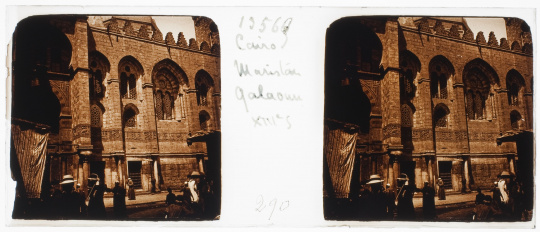 13569
Cairo
Maristán
Qalaoun
XIIIºS
290